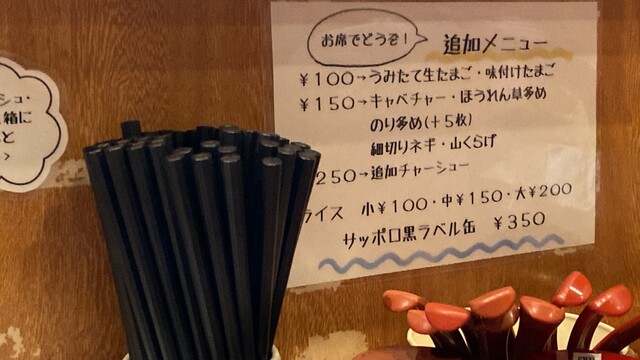 シュ・
箱に
と
>
お席でどうぞ!
追加メニュー
¥100→うみたて生たまご・味付けたまご
¥150→キャベチャー・ほうれん草多め
のり多め(+5枚)
細切りネギ・山くらげ
250→追加チャーシュー
ライス 小¥100・中¥150・大¥200
サッポロ黒ラベル缶 ¥350